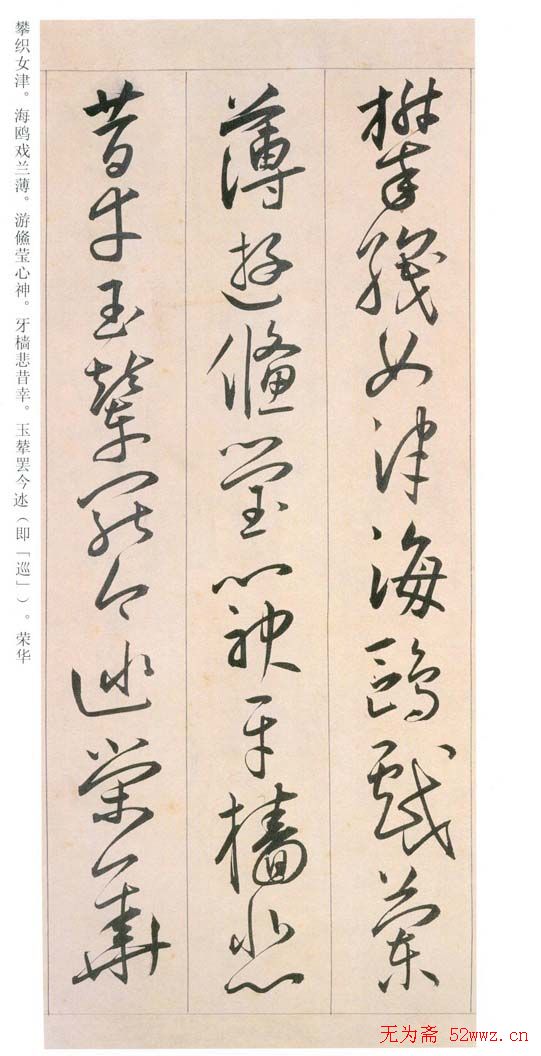 攀織女津海鷗戲蘭
薄遊儵瑩心神牙檣悲
昔幸玉輦罷今榮華
攀织女津。海鸥戏兰薄。游儵莹心神。牙樯悲昔幸。玉辇罢今（即「巡」）。荣华
无为斋 52wwz.cn